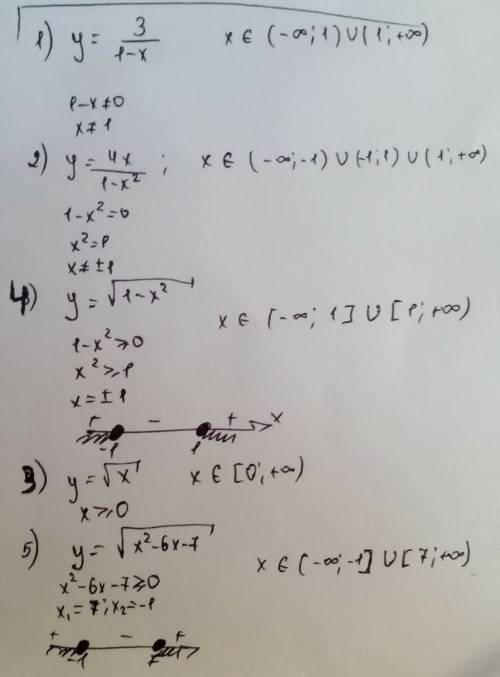 1) y = 3/(1-x) x ∈ (-∞; 1) ∪ (1; +∞)
1-x≠0
x≠1
2) y = 4x/(1-x²); x ∈ (-∞; -1) ∪ (-1; 1) ∪ (1; +∞)
1-x²=0
x²=1
x≠±1
4) y = √(1-x²) x ∈ [-∞; 1] ∪ [1; +∞)
1-x²≥0
x²≥1
x=±1
+ - + x
-1 1
3) y = √x x ∈ [0; +∞)
x≥0
5) y = √(x²-6x-7) x ∈ (-∞; -1] ∪ [7; +∞)
x²-6x-7≥0
x₁=7; x₂=-1
+ - +
-1 7